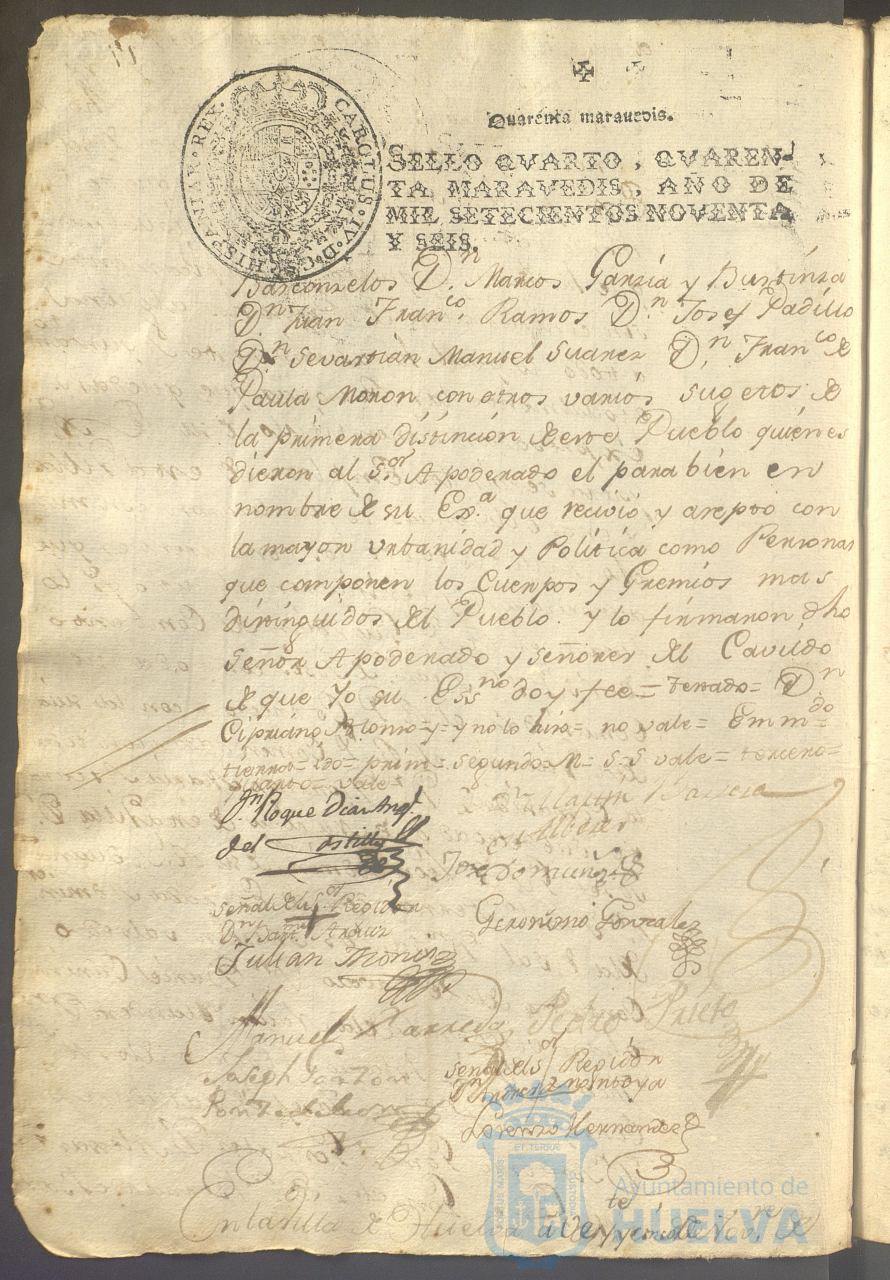 Quarenta maravedis.
SELLO QVARTO, QVAREN-
TA MARAVEDIS, AÑO DE
MIL SETECIENTOS NOVENTA
Y SEIS.
CAROLUS · IV · D · G · HISPANIAR · REX ·
Basconzelos D.n Marcos Garzia y Bustinza
D.n Juan Fran.co Ramos D.n Josef Padillo
D.n Sevastian Manuel Suarez D.n Fran.co de
Paula Moron con otros varios sugetos de
la primera distincion de este Pueblo quienes
dieron al S.or Apoderado el parabien en
nombre de su Ex.a que recivio y acepto con
la mayor urbanidad y Politica como Personas
que componen los Cuerpos y Gremios mas
distinguidos del Pueblo. y lo firmaron dho
Señor Apoderado y señores del Cavildo
de que Yo su Ess.no doy fee = testado = D.n
Cipriano Alonso = y = y no lo hiso = no vale = Emm.do
tierros = do = prim = segundo = M = s. s vale = tercero =
quarto = vale =
D.n Roque Diaz Ang.l
del Castillo
Martin Garcia
Jox Domung
señal del S.or Regidor
Geronimo Gonzalez
Julian Moniz
Manuel Barreda Pedro Prieto
Joseph
señal del S.or Regidor
Ponze de Leon
Montoya
Lorenzo Hernandez
En la Villa de Huelva a veynte y de Nov.re de
Ayuntamiento de
HUELVA